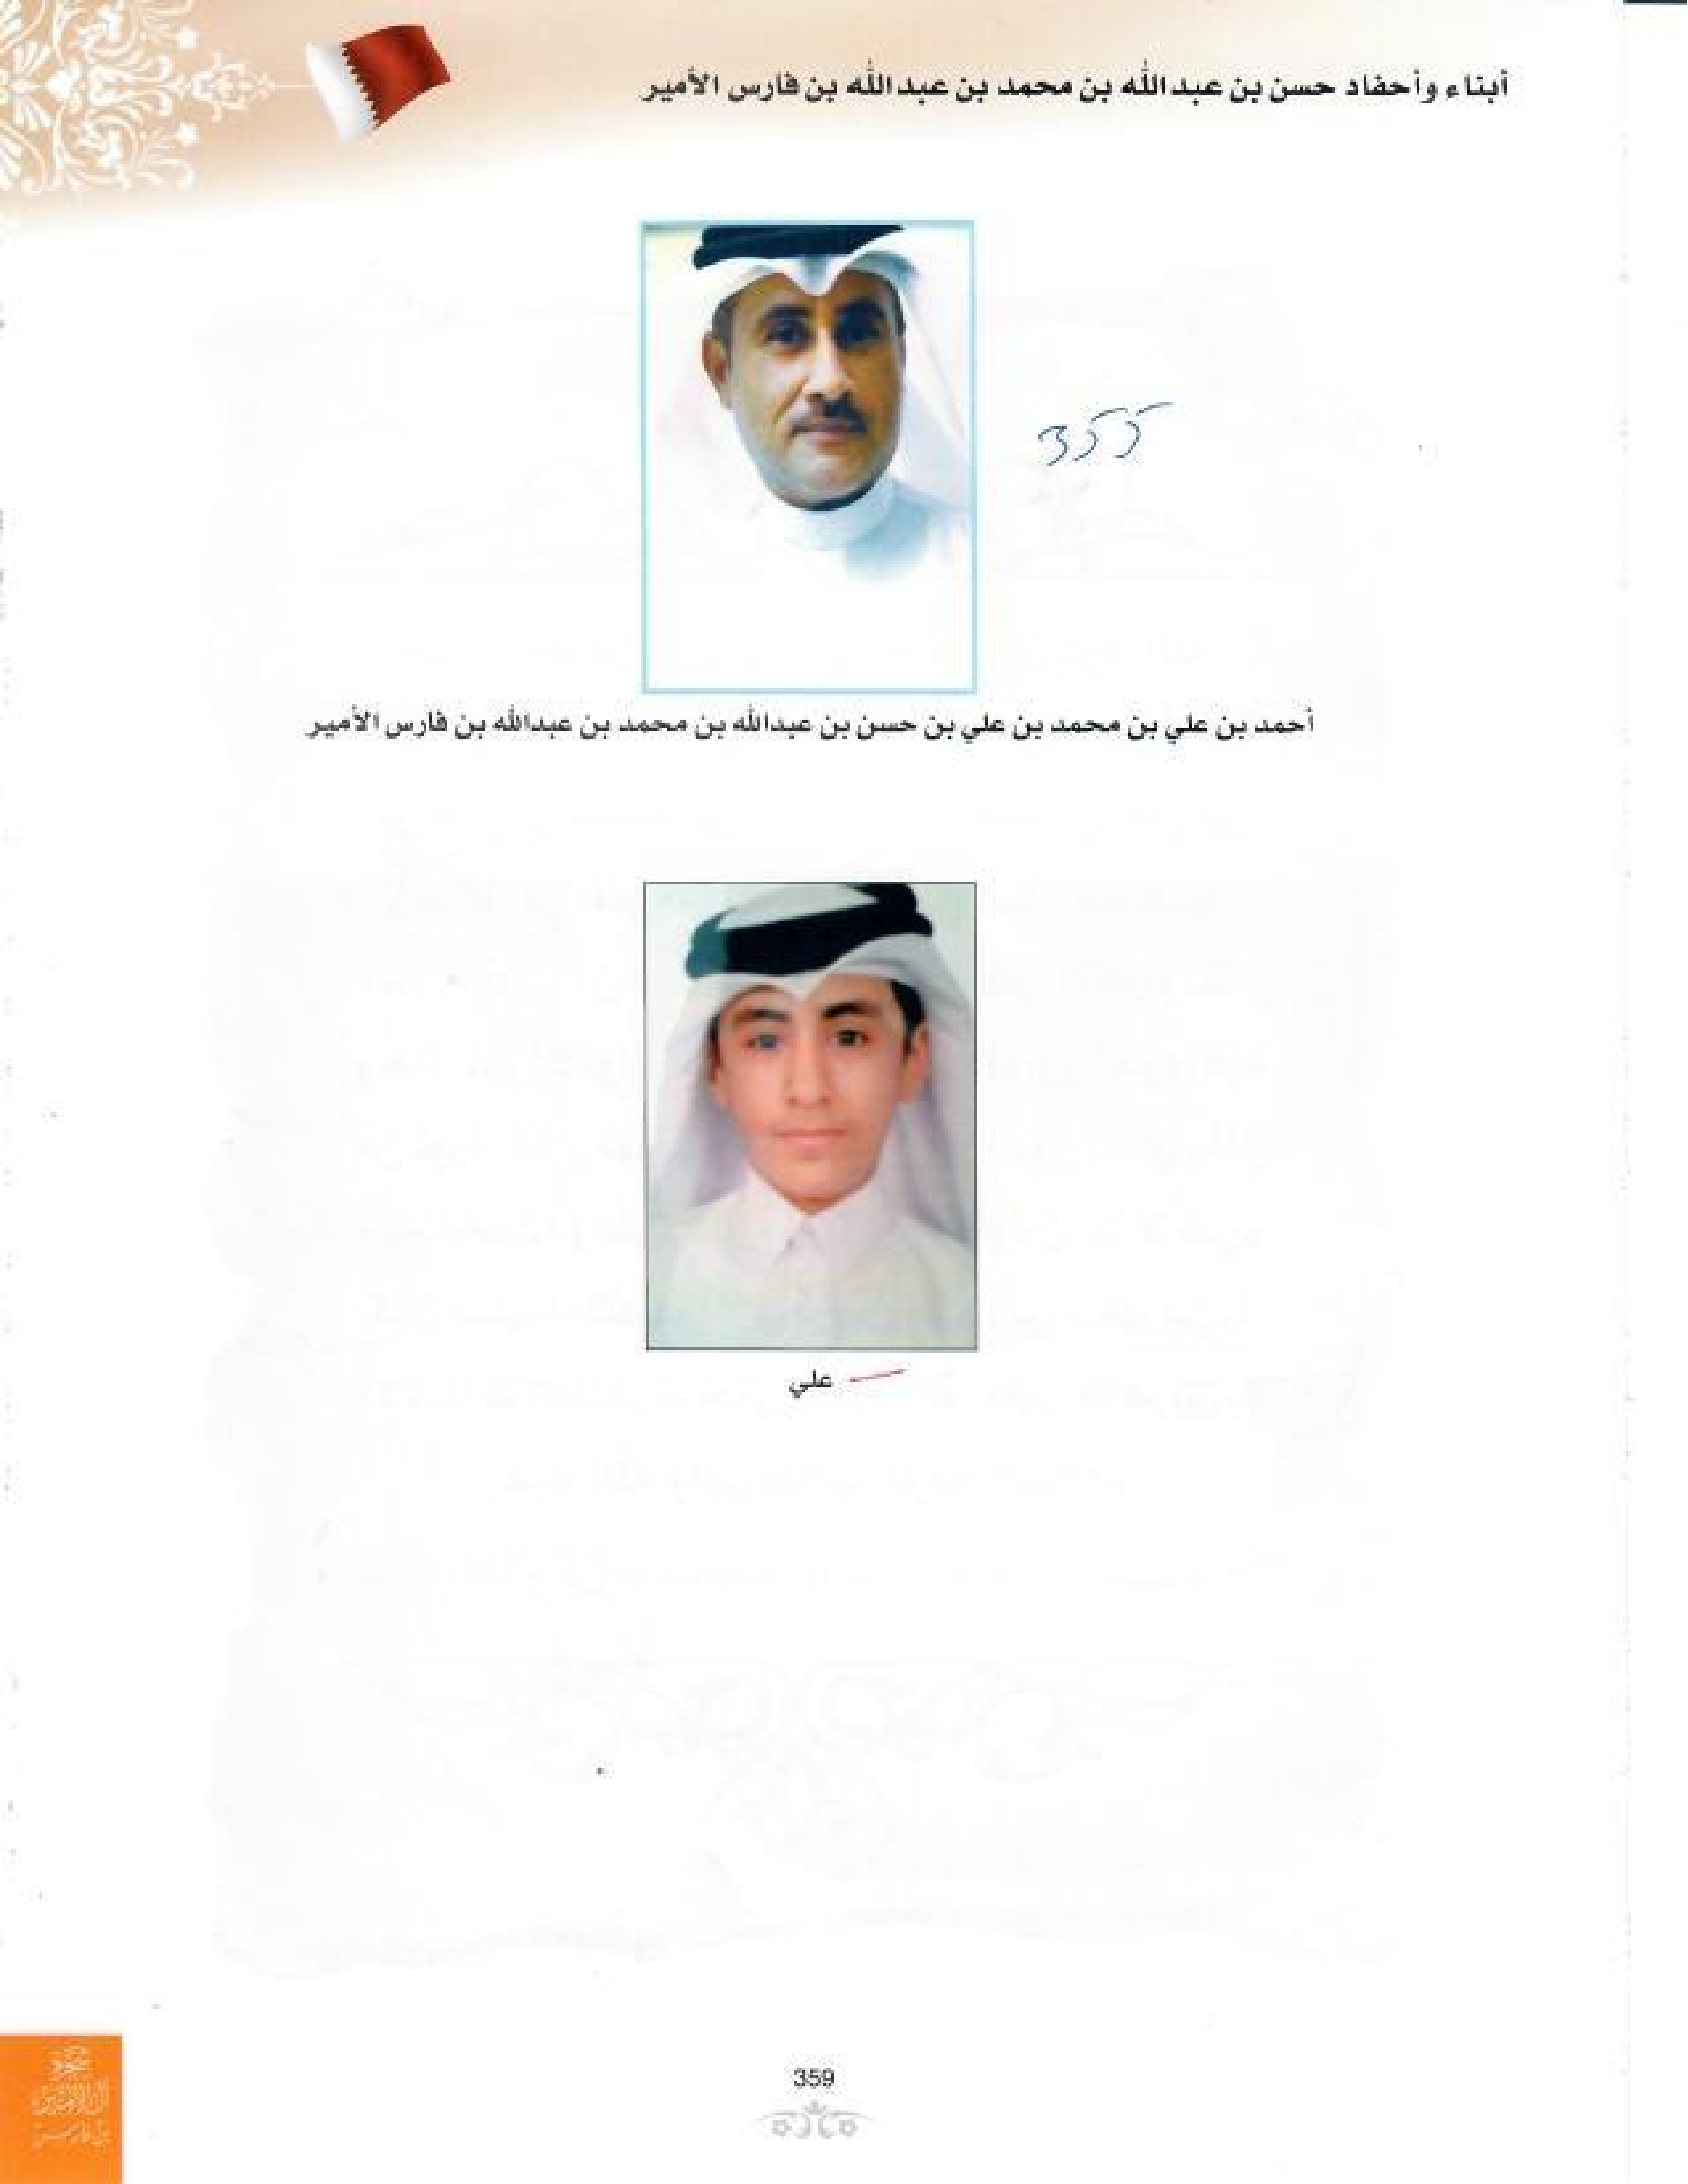 أبناء وأحفاد حسن بن عبدالله بن محمد بن عبدالله بن فارس الأمير
355
أحمد بن علي بن محمد بن علي بن حسن بن عبدالله بن محمد بن عبدالله بن فارس الأمير
علي
359